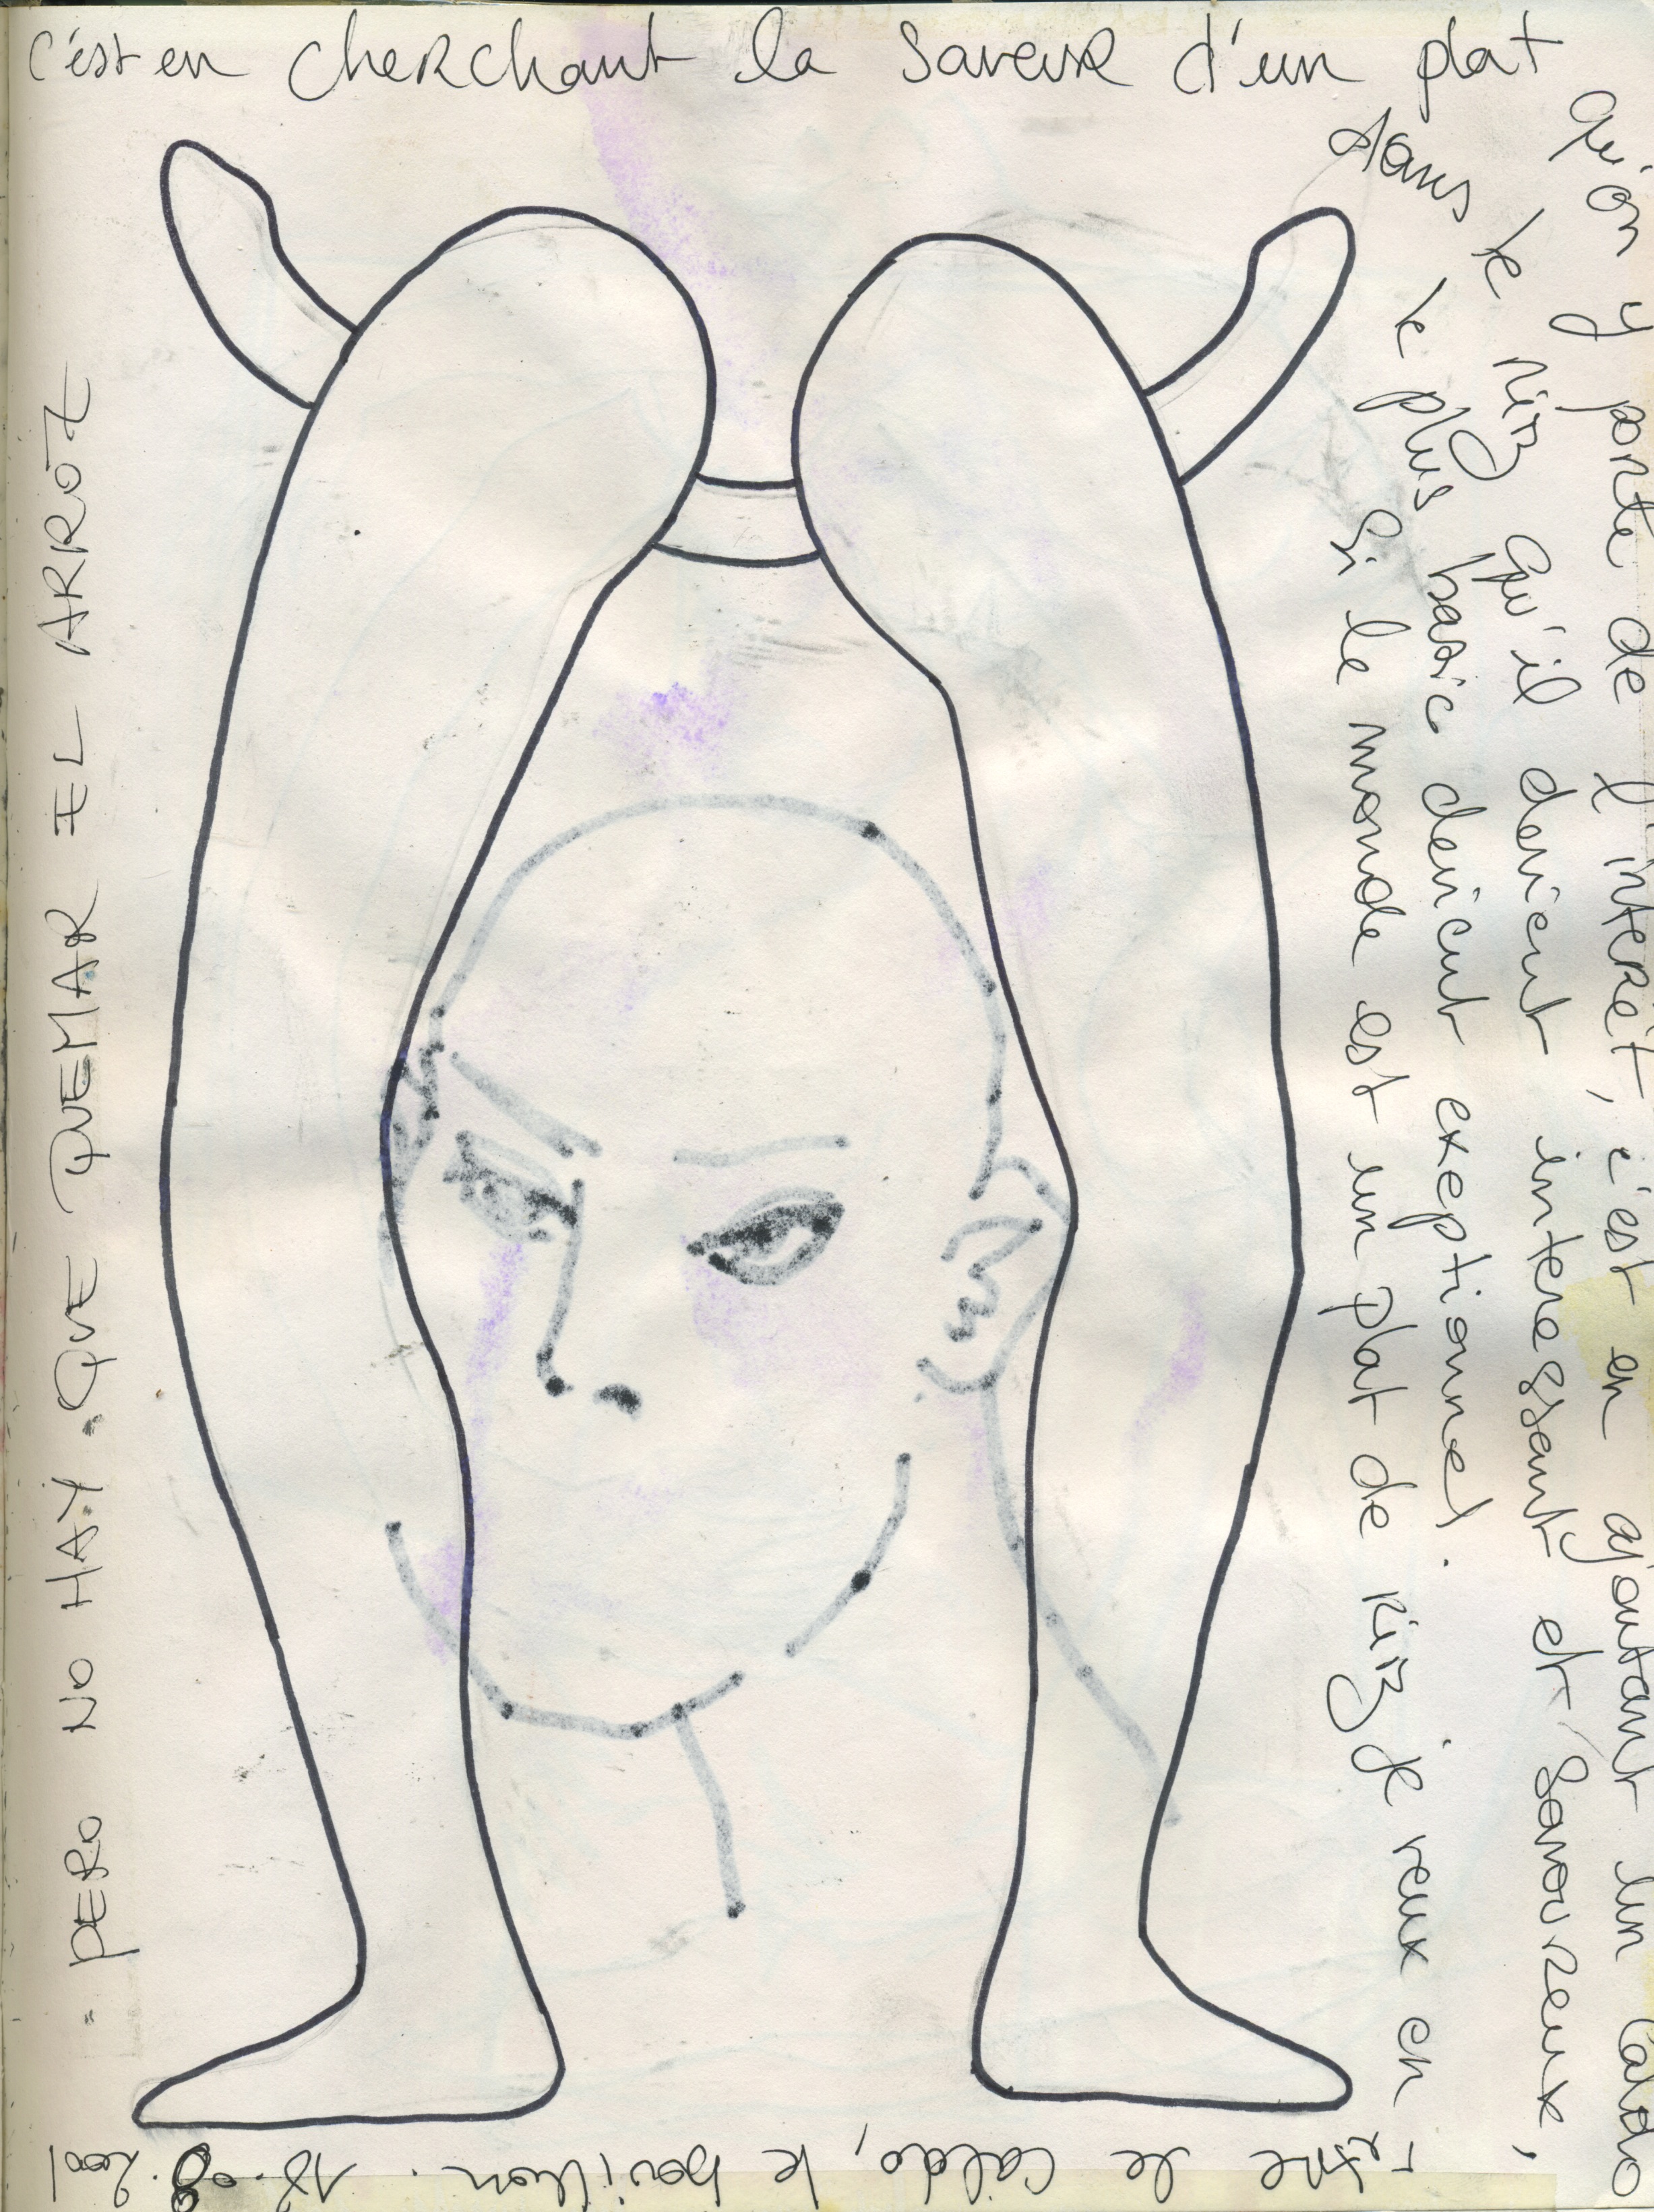 c'est en cherchant la saveur d'un plat
qu'on y porte de l'interêt, c'est en ajoutant un caldo
dans le riz qu'il devient interessant et savoureux,
le plus basic devient exeptionnel.
Si le monde est un plat de riz je veux en
être le caldo, le bouillon. 18.08.2001
. PERO NO HAY QUE QUEMAR EL ARROZ